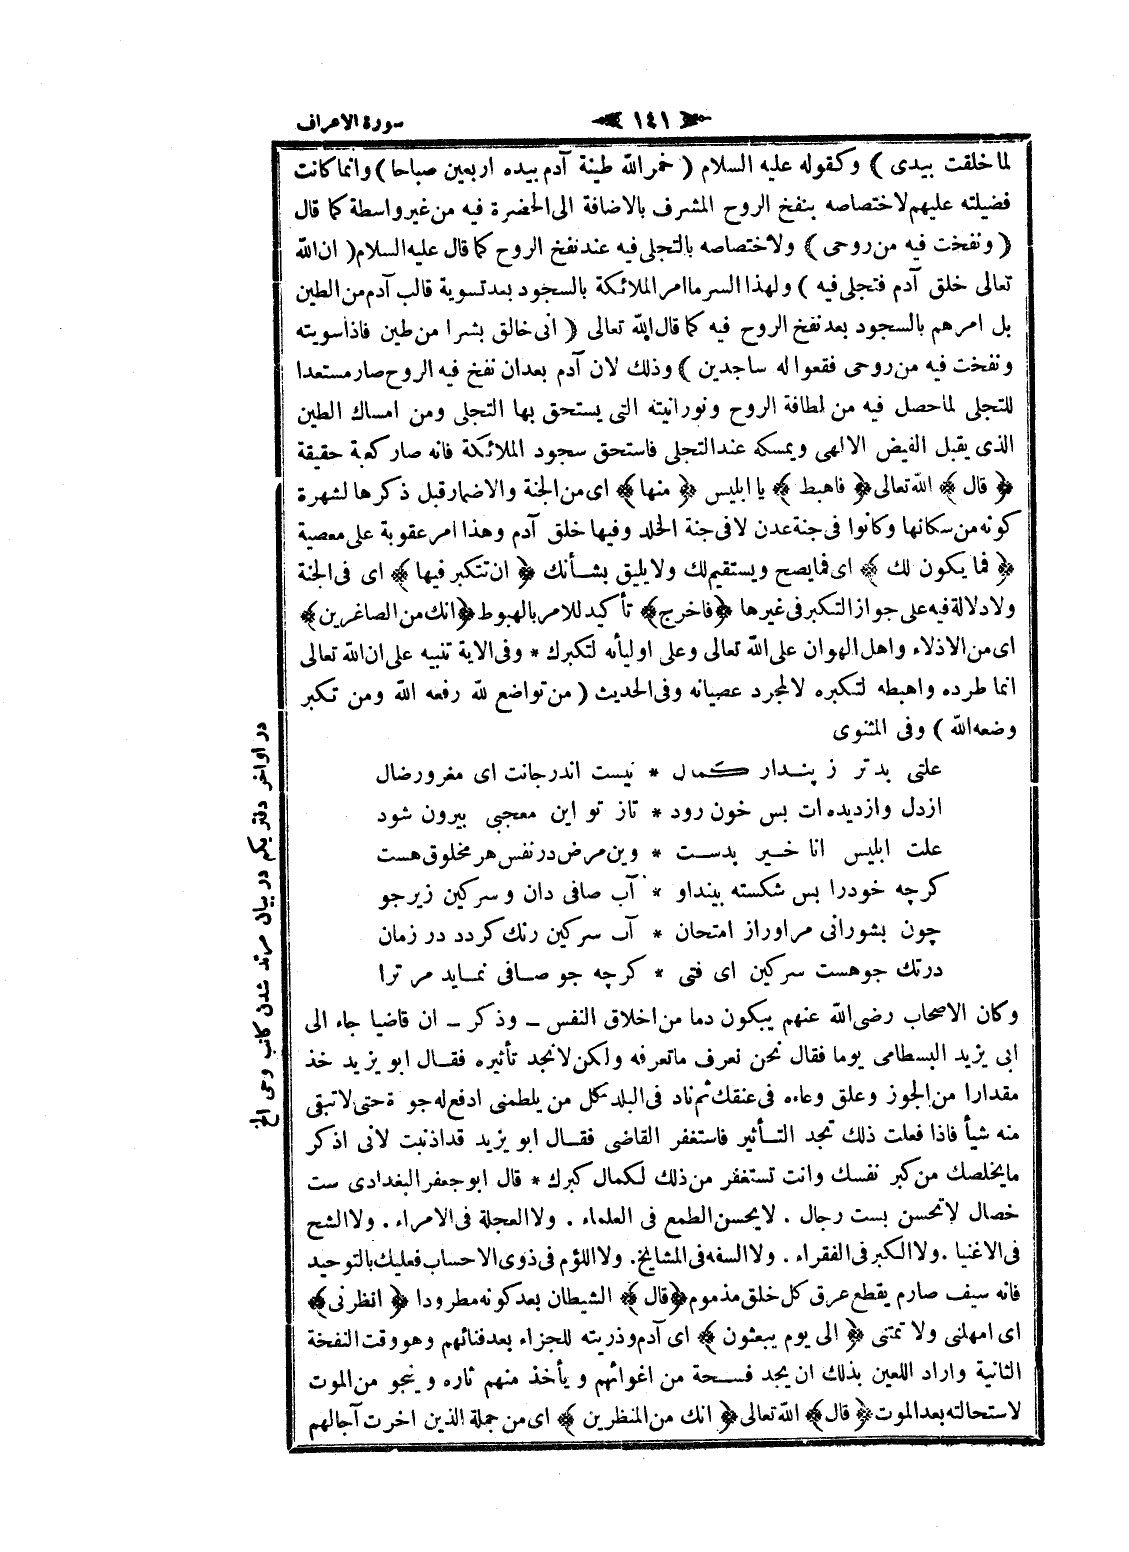 سورة الاعراف
١٤١
لما خلقت بيدى ) وكقوله عليه السلام ( خمر الله طينة آدم بيده اربعين صباحا ) وانما كانت
فضيلته عليهم لاختصاصه بنفخ الروح المشرف بالاضافة الى الحضرة فيه من غير واسطة كما قال
( ونفخت فيه من روحى ) ولاختصاصه بالتجلى فيه عند نفخ الروح كما قال عليه السلام ( ان الله
تعالى خلق آدم فتجلى فيه ) ولهذا السر ما امر الملائكة بالسجود بعد تسوية قالب آدم من الطين
بل امرهم بالسجود بعد نفخ الروح فيه كما قال الله تعالى ( انى خالق بشرا من طين فاذا سويته
ونفخت فيه من روحى فقعوا له ساجدين ) وذلك لان آدم بعد ان نفخ فيه الروح صار مستعدا
للتجلى لما حصل فيه من لطافة الروح ونورانيته التى يستحق بها التجلى ومن امساك الطين
الذى يقبل الفيض الالهى ويمسكه عند التجلى فاستحق سجود الملائكة فانه صار كعبة حقيقة
﴿ قال ﴾ الله تعالى ﴿ فاهبط ﴾ يا ابليس ﴿ منها ﴾ اى من الجنة والاضمار قبل ذكرها لشهرة
كونه من سكانها وكانوا فى جنة عدن لا فى جنة الخلد وفيها خلق آدم وهذا امر عقوبة على معصية
﴿ فما يكون لك ﴾ اى فما يصح ويستقيم لك ولا يليق بشأنك ﴿ ان تتكبر فيها ﴾ اى فى الجنة
ولا دلالة فيه على جواز التكبر فى غيرها ﴿ فاخرج ﴾ تأكيد للامر بالهبوط ﴿ انك من الصاغرين ﴾
اى من الاذلاء واهل الهوان على الله تعالى وعلى اوليائه لتكبرك * وفى الاية تنبيه على ان الله تعالى
انما طرده واهبطه لتكبره لا لمجرد عصيانه وفى الحديث ( من تواضع لله رفعه الله ومن تكبر
وضعه الله ) وفى المثنوى
علتى بدتر ز پندار كمال * نيست اندر جانت اى مغرور ضال
از دل واز ديده ات بس خون رود * تاز تو اين معجبى بيرون شود
علت ابليس انا خير بدست * وين مرض در نفس هر مخلوق هست
كرچه خودرا بس شكسته بيند او * آب صافى دان و سركين زير جو
چون بشورانى مراوراز امتحان * آب سركين رنك كردد در زمان
درتك جوهست سركين اى فتى * كرچه جو صافى نمايد مر ترا
وكان الاصحاب رضى الله عنهم يبكون دما من اخلاق النفس ـ وذكر ـ ان قاضيا جاء الى
ابى يزيد البسطامى يوما فقال نحن نعرف ما تعرفه ولكن لا نجد تأثيره فقال ابو يزيد خذ
مقدارا من الجوز وعلق وعاءه فى عنقك ثم ناد فى البلد كل من يلطمنى ادفع له جو ة حتى لا تبقى
منه شيأ فاذا فعلت ذلك تجد التأثير فاستغفر القاضى فقال ابو يزيد قد اذنبت لانى اذكر
ما يخلصك من كبر نفسك وانت تستغفر من ذلك لكمال كبرك * قال ابو جعفر البغدادى ست
خصال لا تحسن بست رجال . لا يحسن الطمع فى العلماء . ولا العجلة فى الامراء . ولا الشح
فى الاغنيا . ولا الكبر فى الفقراء . ولا السفه فى المشايخ . ولا اللؤم فى ذوى الاحساب فعليك بالتوحيد
فانه سيف صارم يقطع عرق كل خلق مذموم ﴿ قال ﴾ الشيطان بعد كونه مطرودا ﴿ انظرنى ﴾
اى امهلنى ولا تمتنى ﴿ الى يوم يبعثون ﴾ اى آدم وذريته للجزاء بعد فنائهم وهو وقت النفخة
الثانية واراد اللعين بذلك ان يجد فسحة من اغوائهم و يأخذ منهم ثاره وينجو من الموت
لاستحالته بعد الموت ﴿ قال ﴾ الله تعالى ﴿ انك من المنظرين ﴾ اى من جملة الذين اخرت آجالهم
در اواخر دفتر يكم در بيان مرتد شدن كاتب وحى الخ